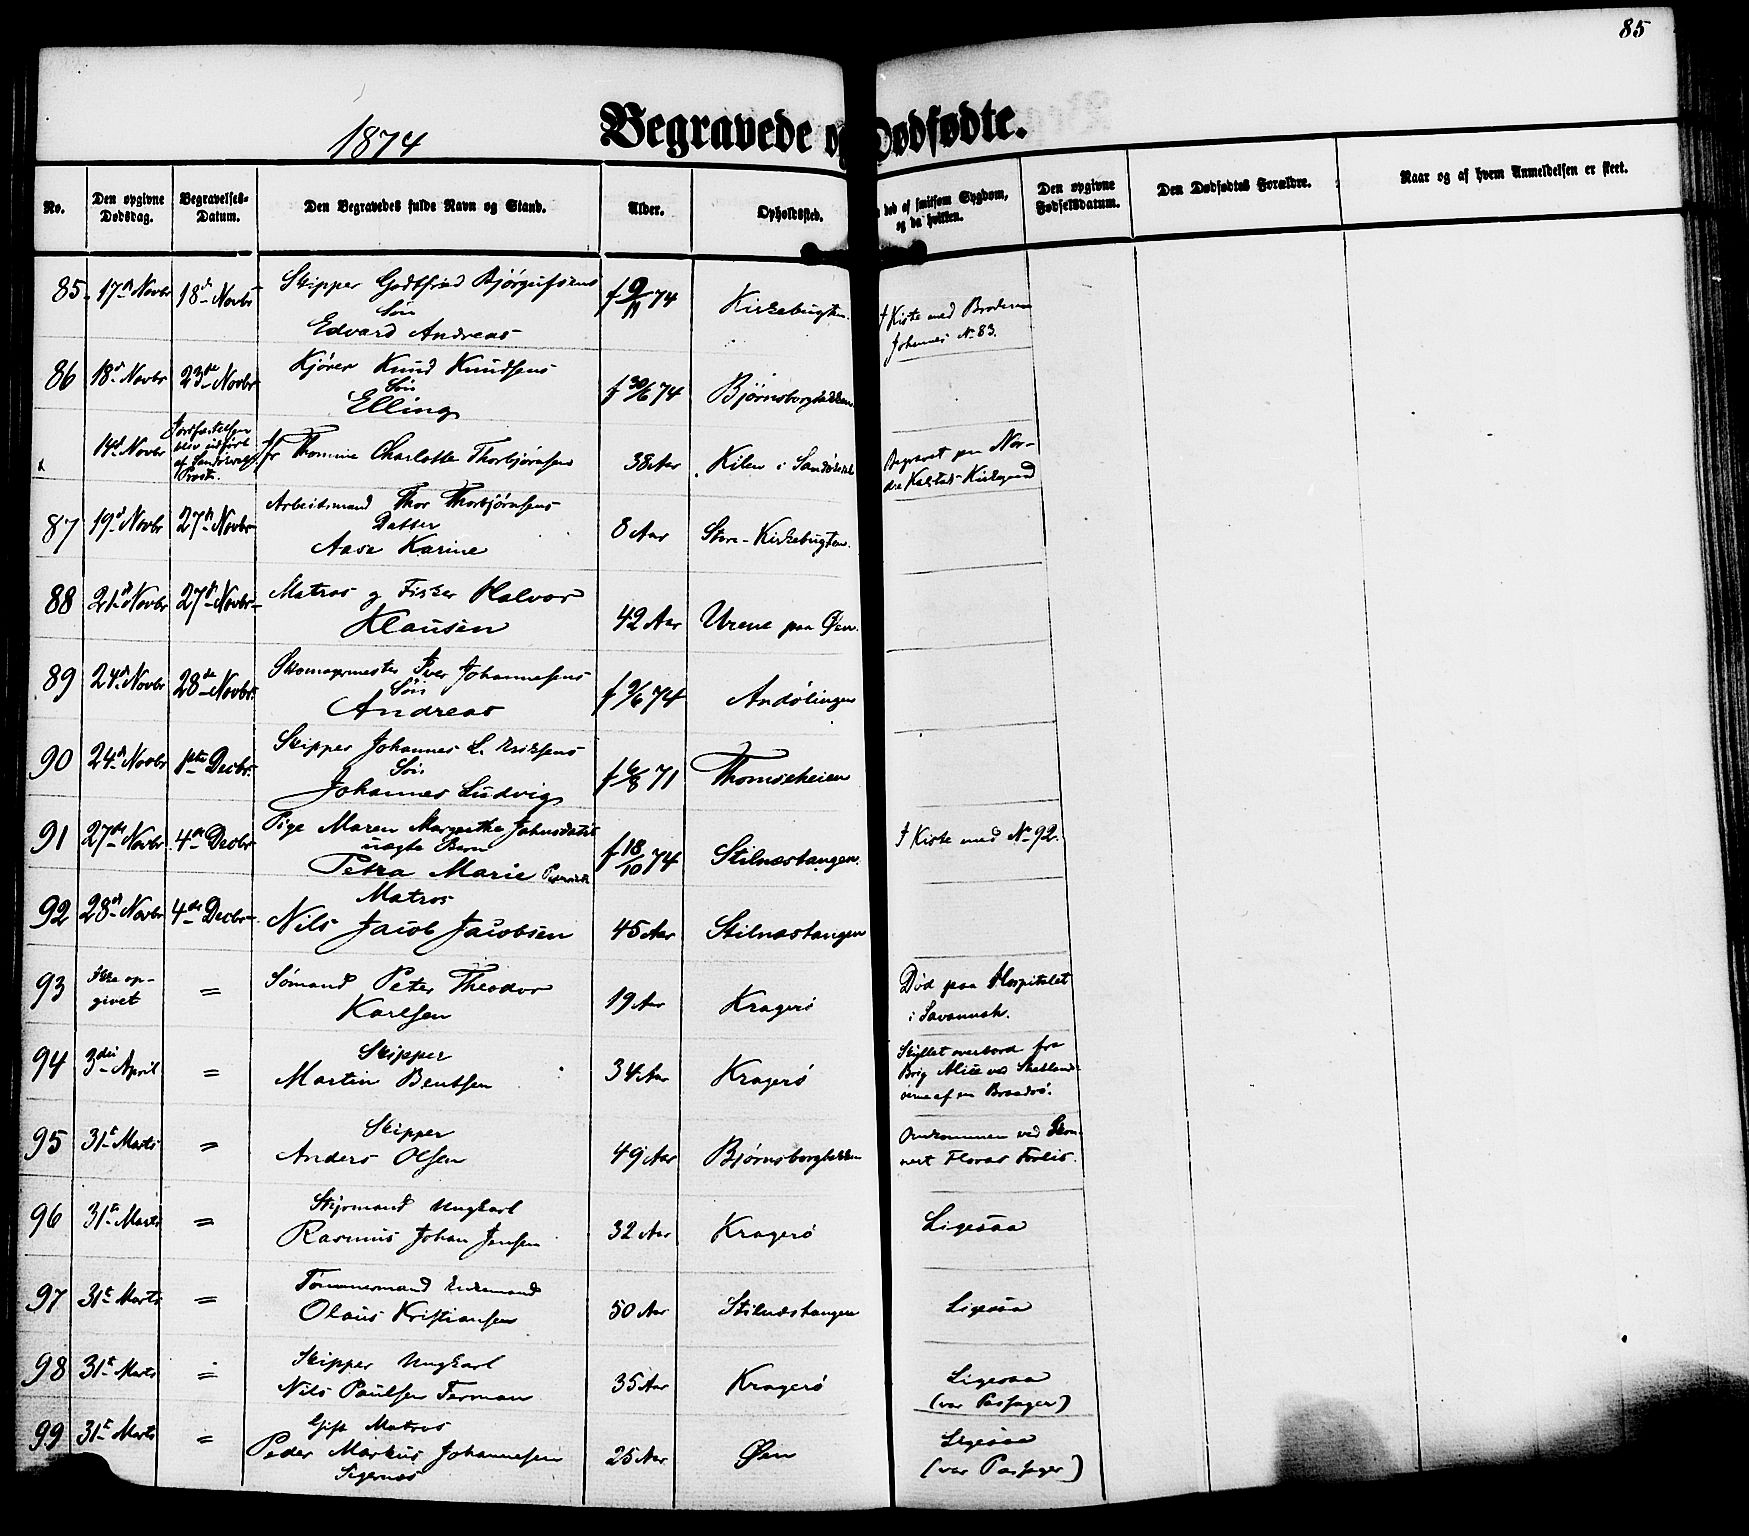 85
1874
Begravede og Dødfødte.
No.
Den opgivne Dødsdag.
Begravelses-Datum.
Den Begravedes fulde Navn og Stand.
Alder.
Opholdssted.
død af smitsom Sygdom, og da hvilken.
Den opgivne Fødselsdatum.
Den Dødfødtes Forældre.
Naar og af hvem Anmeldelsen er skeet.
85. 17d Novbr 18d Novbr Skipper Godtfried Bjørgufsens f 9/11 74 Kirkebugten. I Kiste med Broderen
Søn
Edvard Andreas Johannes No 83.
86 18d Novbr 23de Novbr Kjører Knud Knudsens f 30/6 74 Bjørnsborgbakken
Søn
Elling
14d Novbr Jordfæstelsen blev udført af Provst. Thomine Charlotte Thorbjørnsen 38 Aar Kilen i Begravet paa Nor-
dre Kalstad-Kirkegaard
87 19d Novbr 27d Novbr Arbeidsmand Thor Thorbjørnsens 8 Aar Store-Kirkebugten.
Datter
Aase Karine
88 21d Novbr 27d Novbr Matros og Fisker Halvor 42 Aar Urene paa Øen.
Klausen
89 24d Novbr 28de Novbr. Skomagermester Iver Johannesens f 9/6 74 Andølingen
Søn
Andreas
90 24d Novbr 1ste Decbr. Skipper Johannes L. Eriksens f 6/8 71 Thomseheien
Søn
Johannes Ludvig
91 27de Novbr 4de Decbr Pige Maren Margrethe Johnsdatt f 18/10 74 Stilnæstangen. I Kiste med No 92.
uægte Barn
Petra Marie
92 28d Novbr 4de Decbr Matros
Nils Jacob Jacobsen 45 Aar Stilnæstangen
93 Ikke op-
givet = Sømand Peter Theodor 19 Aar Kragerø Død paa Hospitalet
Karlsen i Savannah.
94 3die April = Skipper 34 Aar Kragerø Skyllet overbord fra
Martin Bentsen Brig Alice ved Shetlands-
øerne af en Braadsø.
95 31t Marts = Skipper 49 Aar Bjørnsborgbakken Omkommen ved Skon-
Anders Olsen nert Floras Forlis.
96 31t Marts = Styrmand Ungkarl 32 Aar Kragerø Ligesaa
Rasmus Johan Jensen
97 31t Marts = Tømmermand Enkemand 50 Aar Stilnæstangen Ligesaa
Olaus Kristiansen
98 31t Marts = Skipper Ungkarl 35 Aar Kragerø Ligesaa
Nils Paulsen Ferman (var Passager)
99 31t Marts = Gift Matros 25 Aar Øen Ligesaa
Peder Markus Johannesen (var Passager)
Sigernæs